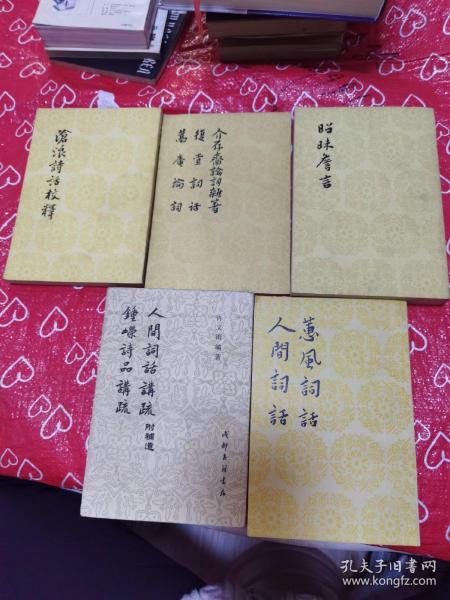 滄浪詩話校釋
介存齋論詞雜著
復堂詞話
蒿庵論詞
昭昧詹言
許文雨編著
人間詞話講疏附補遺
鍾嶸詩品講疏
成都古籍書店
蕙風詞話
人間詞話
孔夫子旧书网
www.kongfz.com